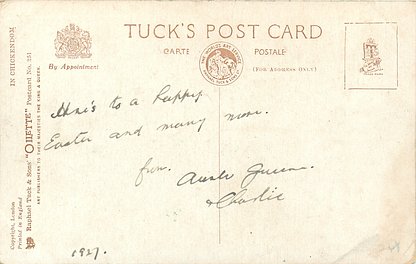 TUCK'S POST CARD
CARTE POSTALE
By Appointment
(FOR ADDRESS ONLY)
IN CHICKENDOM
Raphael Tuck & Sons' "OILETTE" Postcard No.
ART PUBLISHERS TO THEIR MAJESTIES THE KING & QUEEN.
Copyright, London
Printed in England
Here's to a happy
Easter and many more.
from
& Charlie
1927.